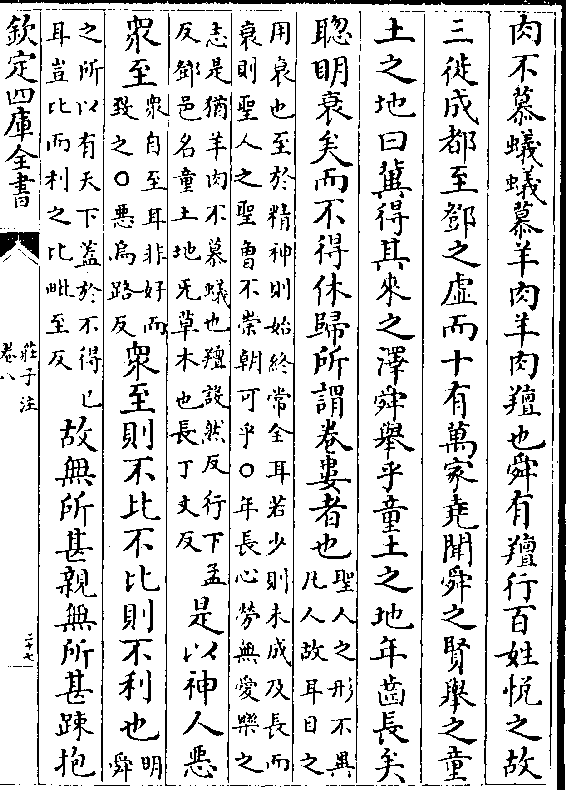 肉不慕蟻蟻慕羊肉羊肉羶也舜有羶行百姓悅之故
三徙成都至鄧之虛而十有萬家堯聞舜之賢舉之童
土之地曰冀得其來之澤舜舉乎童土之地年齒長矣
聦明衰矣而不得休歸所謂卷婁者也
聖人之形不異
凡人故耳目之
用衰也至於精神則始終常全耳若少則未成及長而
衰則聖人之聖曾不崇朝可乎○年長心勞無愛樂之
志是猶羊肉不慕蟻也羶設然反行下孟
反鄧邑名童土地旡草木也長丁丈反
是以神人惡
眾至
眾自至耳非好而
致之○惡烏路反
眾至則不比不比則不利也
明
舜
之所以有天下蓋於不得已
耳豈比而利之比毗至反
故無所甚親無所甚踈抱
欽定四庫全書
莊子注
卷八
二十七